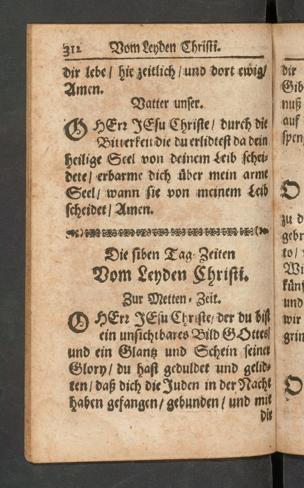 312 Vom Leyden Christi.
dir lebe / hie zeitlich / und dort ewig /
Amen.
Vatter unser.
O HErr JEsu Christe / durch die
Bitterkeit die du erlidtest da dein
heilige Seel von deinem Leib schei-
dete / erbarme dich über mein arme
Seel / wann sie von meinem Leib
scheidet / Amen.
Die siben Tag-Zeiten
Vom Leyden Christi.
Zur Metten-Zeit.
O HErr JEsu Christe / der du bist
ein unsichtbares Bild GOttes /
und ein Glantz und Schein seiner
Glory / du hast geduldet und gelid-
ten / daß dich die Juden in der Nacht
haben gefangen / gebunden / und mit
die
dir
Gib
nuß
auf
spen
O
zu d
gebr
to /
Wi
künf
und
wir
grin
O